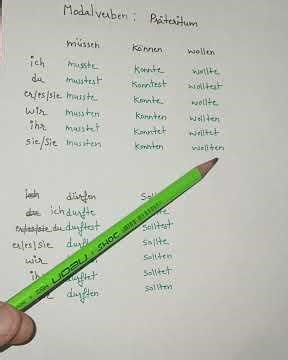 Modalverben : Präteritum
müssen können wollen
ich musste konnte wollte
du musstest konntest wolltest
er/es/sie musste konnte wollte
wir mussten konnten wollten
ihr musstet konntet wolltet
sie/Sie mussten konnten wollten
ich dürfen
du ich durfte
er/es/sie du durftest solltest
er/es/sie sollte
wir sollten
durftet solltet
durften sollten